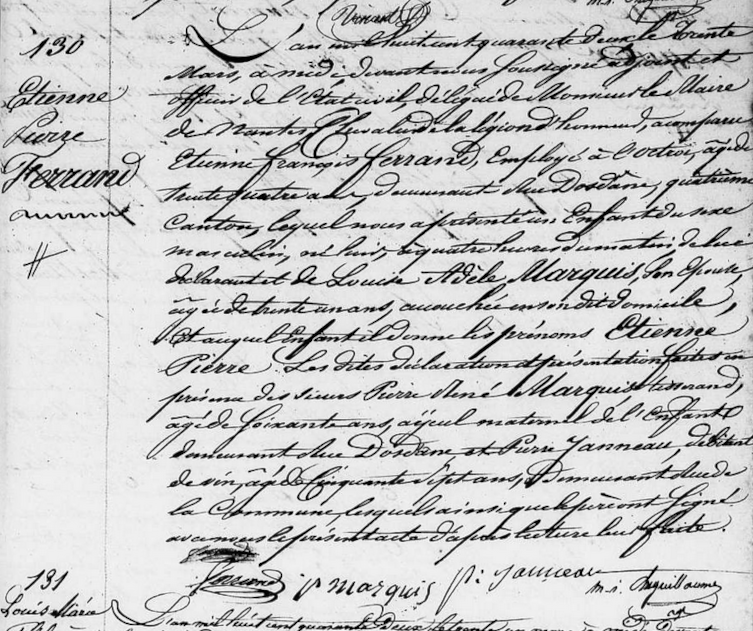 130
Etienne
Pierre
Ferrand
L'an mil huit cent quarante deux, le trente
Mars, à midi devant nous soussigné adjoint et
officier de l'Etat civil, délégué de Monsieur le Maire
de Nantes Chevalier de la légion d'honneur, a comparu
Etienne françois ferrand, Employé à l'octroi, agé de
trente quatre ans, demeurant Rue Dosdane, quatrième
Canton, lequel nous a présenté un Enfant du sexe
masculin, né hier, à quatre heures du matin de lui
déclarant et de Louise Adèle Marquis, son Epouse,
âgée de trente un ans, accouchée en son dit domicile,
Et auquel Enfant il donne les prénoms Etienne
Pierre. Les dites déclaration et présentation faites en
présence des sieurs Pierre René Marquis tisserand,
âgé de soixante ans, ayeul maternel de l'Enfant
demeurant Rue Dosdane et Pierre Janneau, débitant
de vin, âgé de Cinquante sept ans, demeurant Rue de
la Commune, lesquels ainsi que le père ont Signé
avec nous le présent acte d'après lecture leur faite.
p marquis pi. janneau
131
Louis Marie
L'an mil huit cent quarante deux, le trente un mars à midi